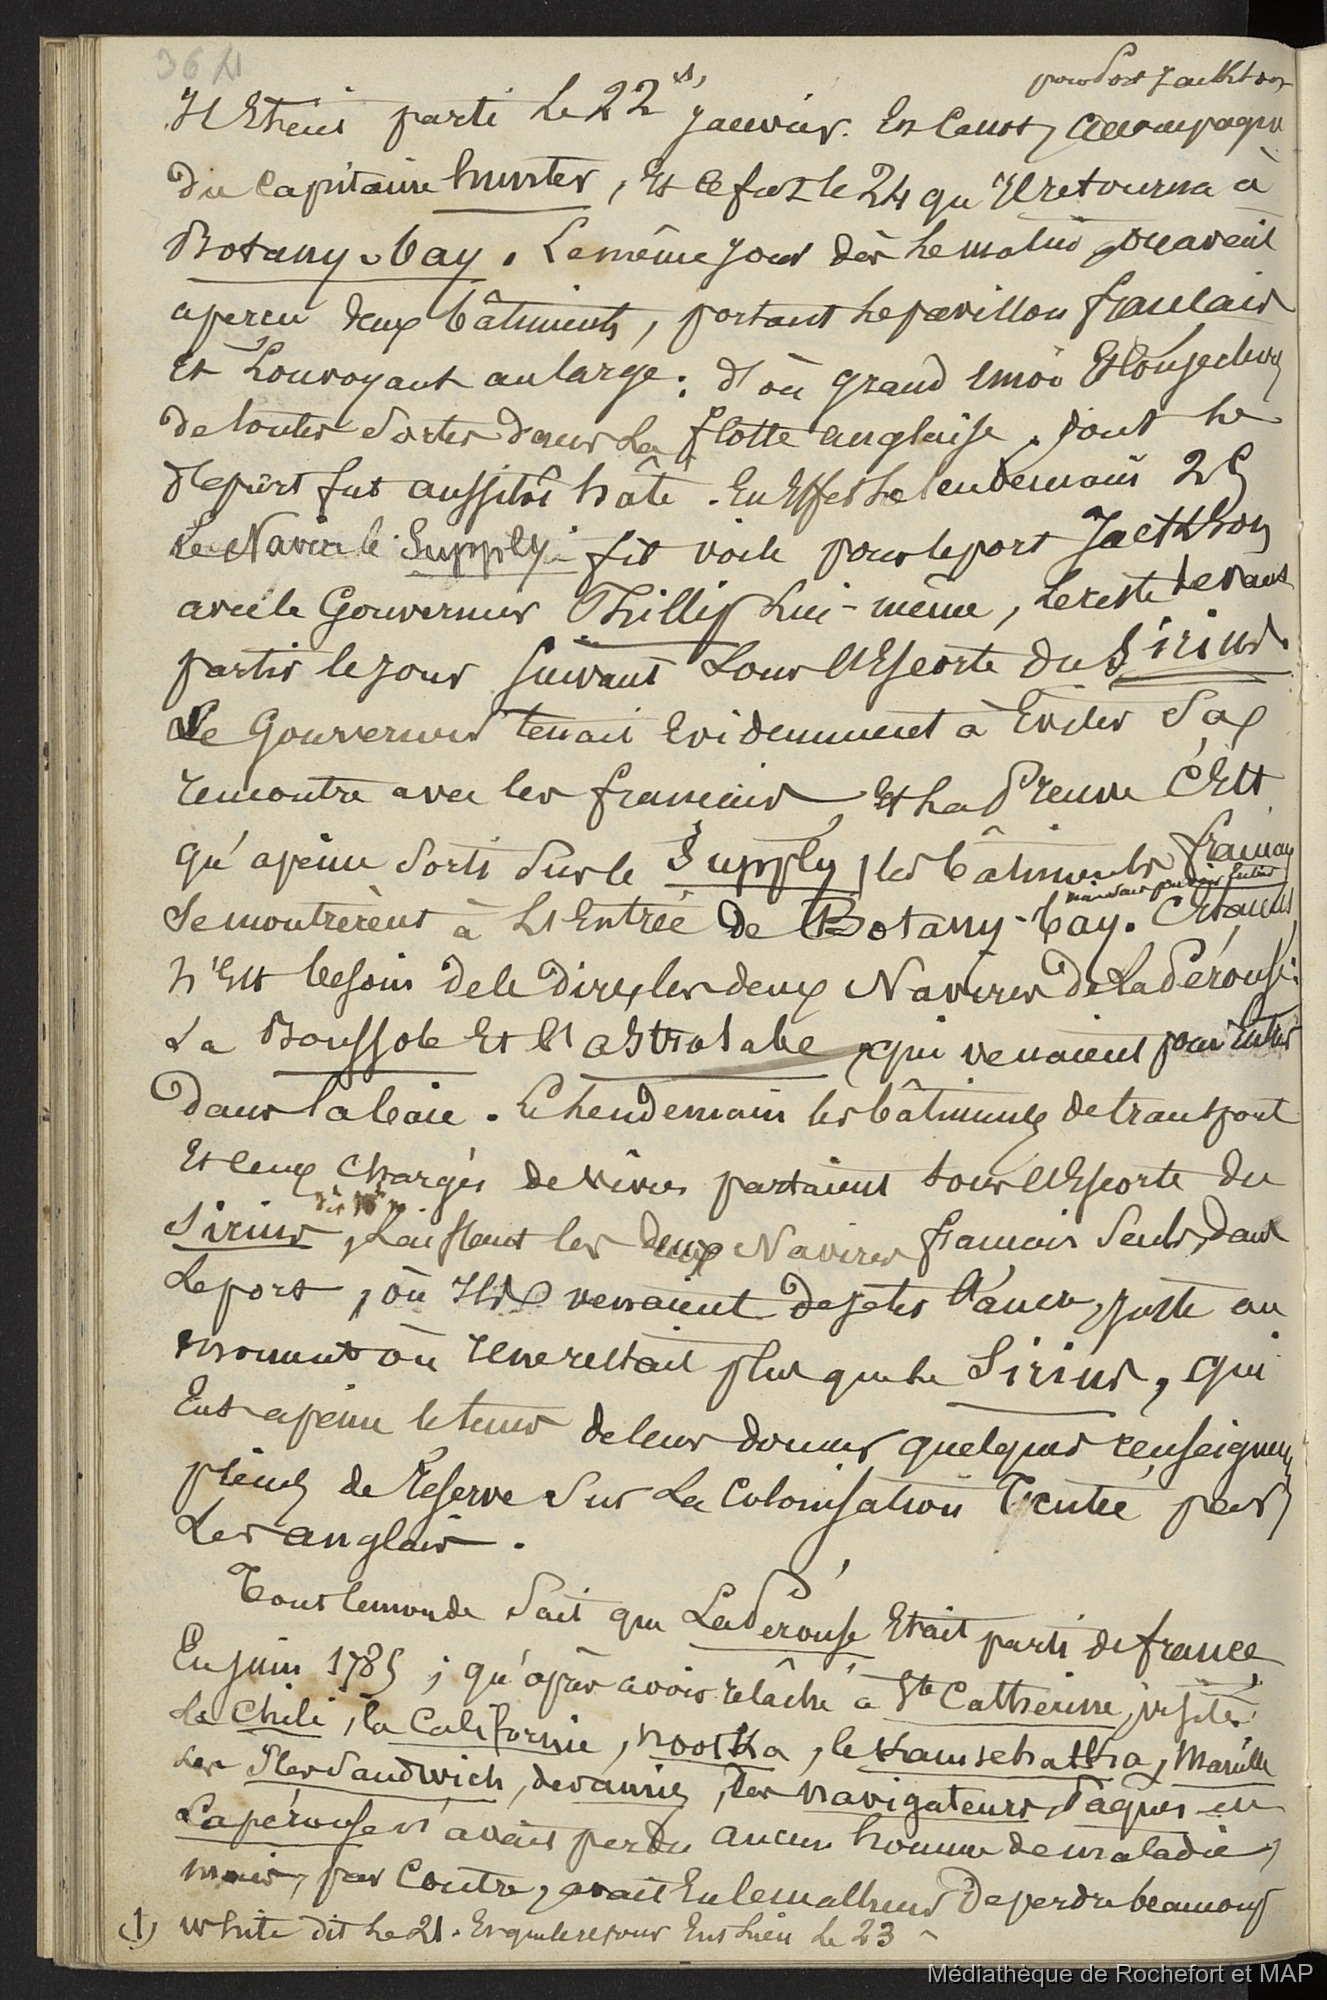 364
pour Port Jackson
Il était parti le 22 (1) Janvier. En Canot, accompagné
du Capitaine hunter, et ce fut le 24 qu'il retourna à
Botany-bay. Le même jour dès le matin, on avait
aperçu deux bâtiments, portant le pavillon français
et Louvoyant au large : d'où grand émoi et conjectures
de toutes sortes dans la flotte anglaise, dont le
départ fut aussitôt hâté. En effet le lendemain 25
Le Navire le Supply fit voile pour le port Jackson
avec le Gouverneur Phillip Lui-même, le reste devant
partir le jour suivant sous l'Escorte du Sirius.
Le Gouverneur tenait Evidemment à Eviter sa
rencontre avec les français, et la Preuve C'est
qu'apeine sorti sur le Supply, les bâtiments français
se montrèrent à l'Entrée de Botany-bay. C'étaient,
n'est besoin de le dire, les deux Navires de La Pérouse :
La Boussole et l'astrolabe, qui venaient pour Entrer
dans la baie. Le lendemain les bâtiments de transport
et ceux chargés de vivres partaient sous l'Escorte du
Sirius, Laissant les deux Navires français seuls, dans
Le port, où Ils venaient de jeter l'ancre, juste au
moment où il ne restait plus que le Sirius, qui
Eut apeine le temps de leur donner quelques renseignements
pleins de Réserve sur La Colonisation Tentée par
Les anglais.
Tout le monde sait que La Pérouse Etait parti de france
En juin 1785 ; qu'après avoir relâché à Ste Catherine, visité
Le Chili, la Californie, nootka, le Kamschatka, Manille
Les Iles Sandwich, des amis, des navigateurs, Pâques &c
Lapérouse n'avait perdu aucun homme de maladie,
mais, par Contre, avait Eu le malheur De perdre beaucoup
(1) White dit le 21. Et que le retour Eut Lieu Le 23
Médiathèque de Rochefort et MAP